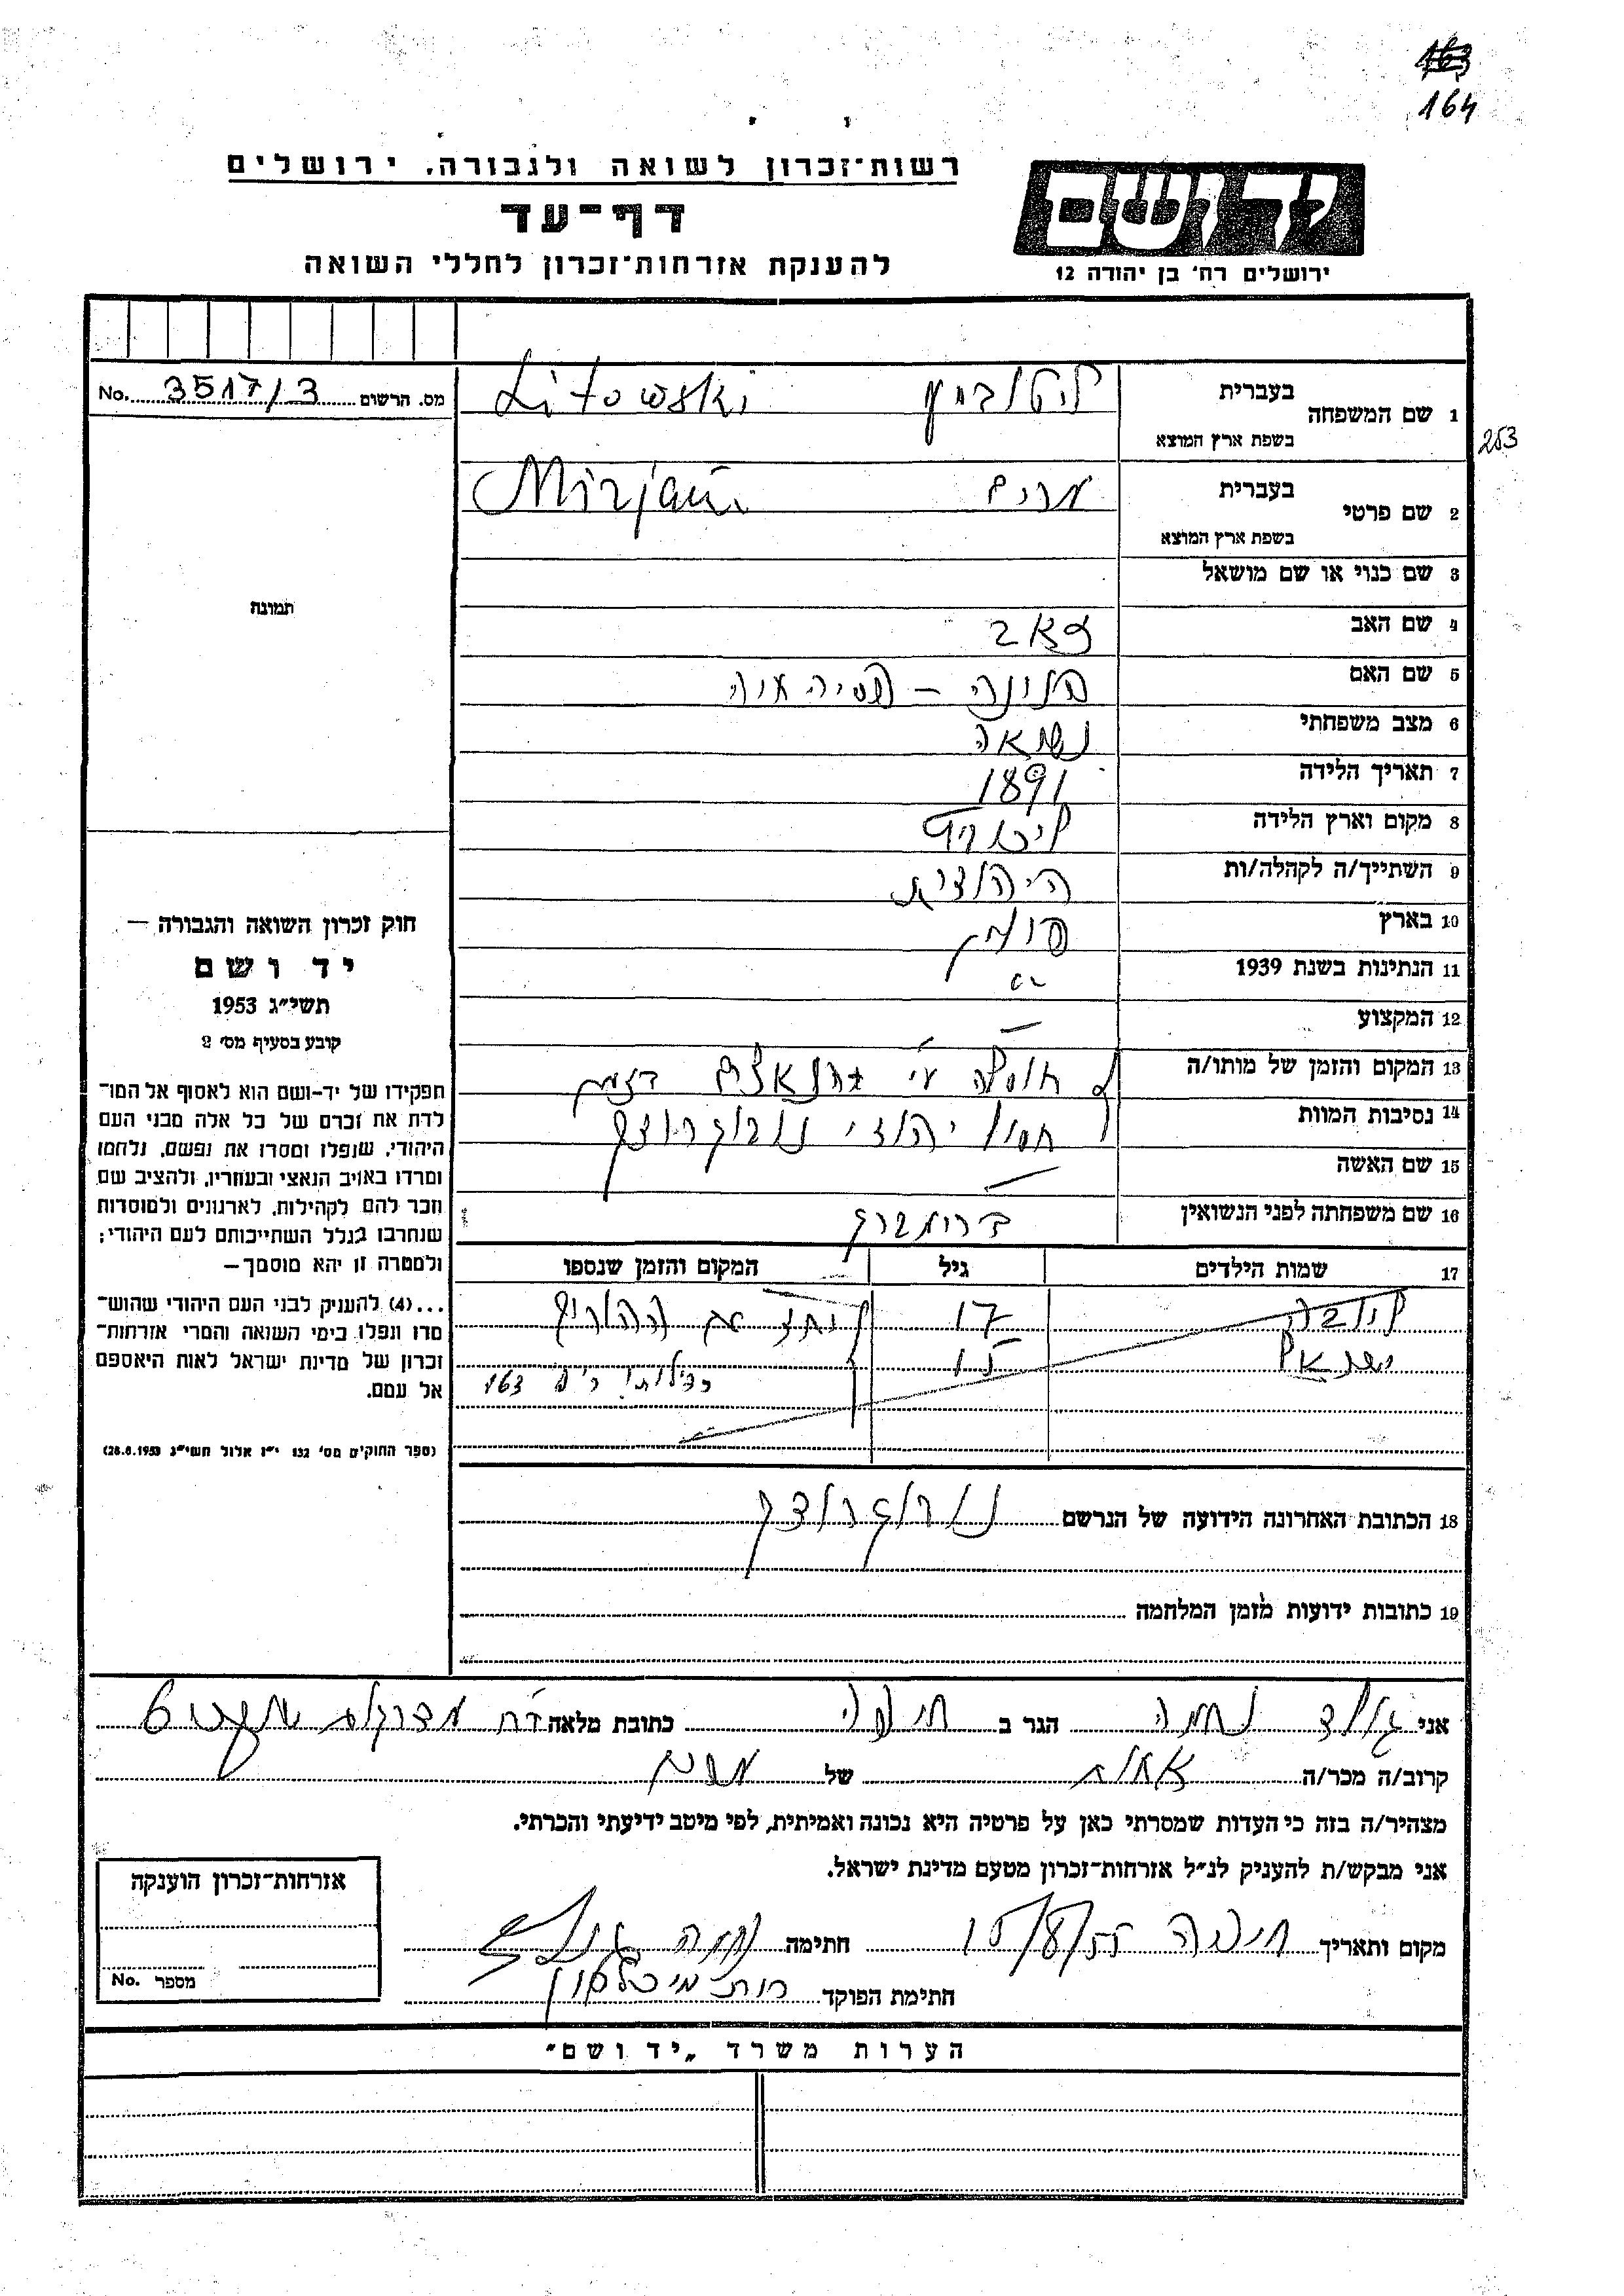 163
164
רשות־זכרון לשואה ולגבורה, ירושלים
דף־עד
להענקת אזרחות־זכרון לחללי השואה
יד ושם
ירושלים רח' בן יהודה 12
מס. הרשום No. 3517/3
1 שם המשפחה בעברית Litowski
בשפת ארץ המוצא
253
2 שם פרטי בעברית מרים Mirjam
בשפת ארץ המוצא
3 שם כנוי או שם מושאל
תמונה
4 שם האב זאב
5 שם האם
6 מצב משפחתי נשואה
7 תאריך הלידה 1891
8 מקום וארץ הלידה
9 השתייך/ה לקהלה/ות היהודית
10 בארץ פולין
11 הנתינות בשנת 1939
12 המקצוע —
13 המקום והזמן של מותו/ה
14 נסיבות המוות יהודי נוברגרודק
15 שם האשה —
16 שם משפחתה לפני הנשואין
17 שמות הילדים גיל המקום והזמן שנספו
ליובה 17 יחד עם ההורים
ישראל 15
163
חוק זכרון השואה והגבורה —
יד ושם
תשי״ג 1953
קובע בסעיף מס׳ 2
תפקידו של יד־ושם הוא לאסוף אל המו־
לדת את זכרם של כל אלה מבני העם
היהודי, שנפלו ומסרו את נפשם, נלחמו
ומרדו באויב הנאצי ובעוזריו, ולהציב שם
וזכר להם לקהילות, לארגונים ולמוסדות
שנחרבו בגלל השתייכותם לעם היהודי;
ולמטרה זו יהא מוסמך —
...(4) להעניק לבני העם היהודי שהוש־
מדו ונפלו בימי השואה והמרי אזרחות־
זכרון של מדינת ישראל לאות היאספם
אל עמם.
(ספר החוקים מס׳ 132 י״ז אלול תשי״ג 28.8.1953)
18 הכתובת האחרונה הידועה של הנרשם נוברגרודק
19 כתובות ידועות מזמן המלחמה
אני גולד נחמה הגר ב חיפה כתובת מלאה רח 6
קרוב/ה מכר/ה אחות של מרים
מצהיר/ה בזה כי העדות שמסרתי כאן על פרטיה היא נכונה ואמיתית, לפי מיטב ידיעתי והכרתי.
אני מבקש/ת להעניק לנ״ל אזרחות־זכרון מטעם מדינת ישראל.
מקום ותאריך חיפה 15/8/55 חתימה נחמה גולד
חתימת הפוקד רות מיכלסון
אזרחות־זכרון הוענקה
מספר No.
הערות משרד „יד ושם״